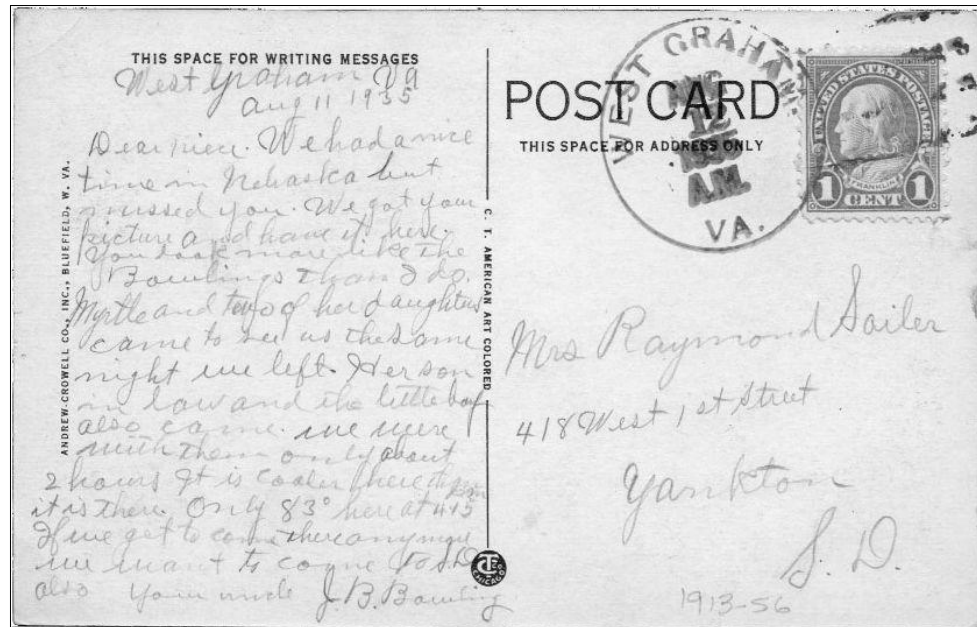 THIS SPACE FOR WRITING MESSAGES
West Graham Va
Aug 11 1935
Dear niece. We had a nice
time in Nebaska but
missed you. We got your
picture and have it here.
You look more like the
Bowlings than I do.
Myrtle and two of her daughters
came to see us the same
night we left. Her son
in law and the little boy
also came. we were
with them only about
2 hours It is cooler here than
it is there. Only 83° here at 4:15
If we get to come there anymore
we want to come to S.D.
also Your uncle J. B. Bowling
ANDREW-CROWELL CO., INC., BLUEFIELD, W. VA.
C. T. AMERICAN ART COLORED
C.T. CHICAGO
POST CARD
THIS SPACE FOR ADDRESS ONLY
WEST GRAHAM
AUG
12
1935
A.M.
VA.
UNITED STATES POSTAGE
FRANKLIN
1 CENT 1
Mrs Raymond Sailer
418 West 1st Street
Yankton
S. D.
1913-56